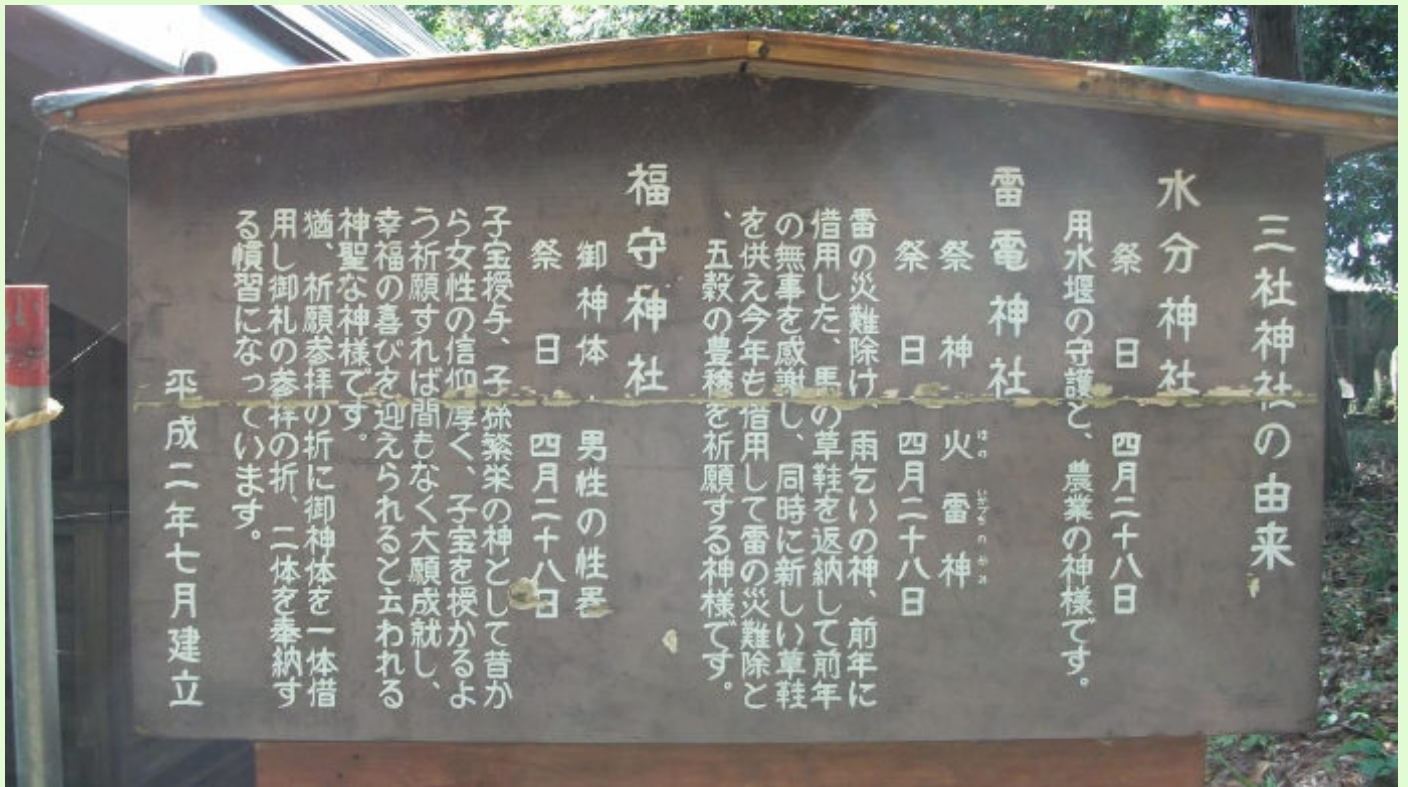 三社神社の由来
水分神社
祭日 四月二十八日
用水堰の守護と、農業の神様です。
雷電神社
祭神 火雷神
ほの いかづちのかみ
祭日 四月二十八日
雷の災難除け 雨乞いの神、前年に
借用した、馬の草鞋を返納して前年
の無事を感謝し、同時に新しい草鞋
を供え今年も借用して雷の災難除と
、五穀の豊穣を祈願する神様です。
福守神社
御神体 男性の性器
祭日 四月二十八日
子宝授与、子孫繁栄の神として昔か
ら女性の信仰厚く、子宝を授かるよ
う祈願すれば間もなく大願成就し、
幸福の喜びを迎えられると云われる
神聖な神様です。
猶、祈願参拝の折に御神体を一体借
用し御礼の参拝の折、二体を奉納す
る慣習になっています。
平成二年七月建立